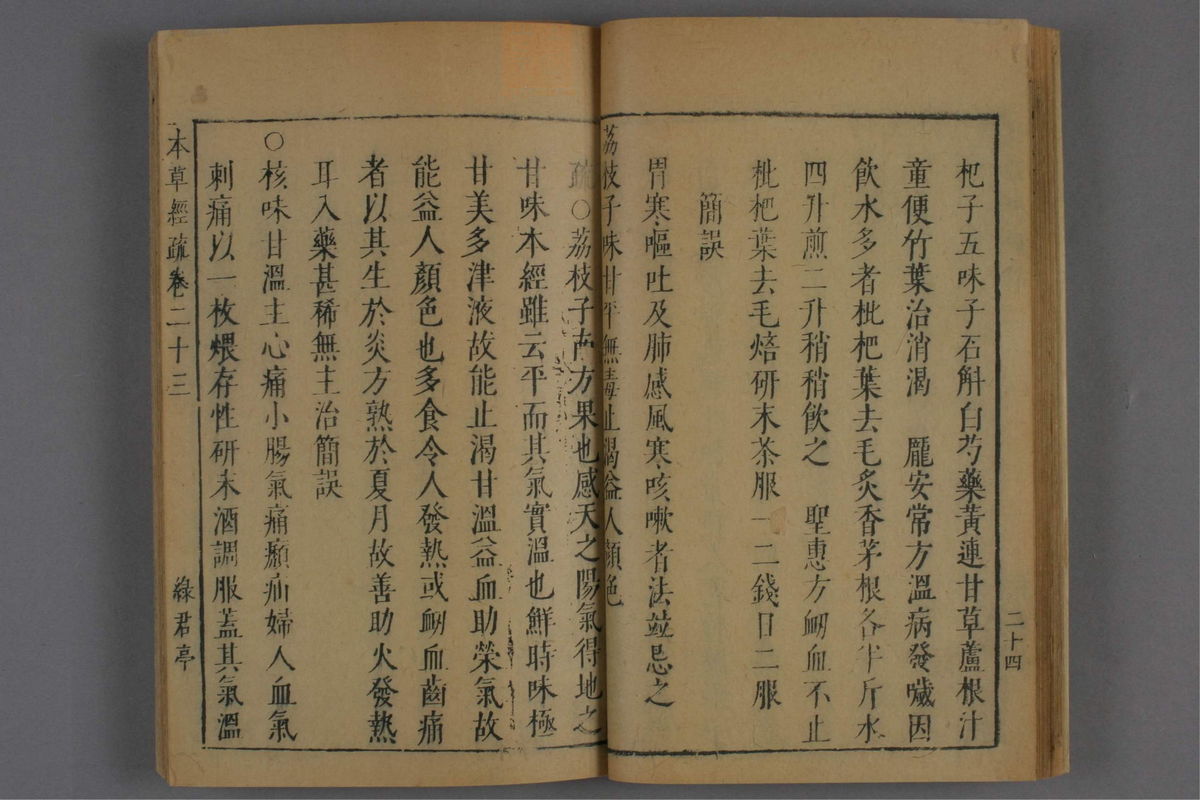 杷子五味子石斛白芍藥黃連甘草蘆根汁
童便竹葉治消渴　龐安常方溫病發噦因
飲水多者枇杷葉去毛炙香茅根各半斤水
四升煎二升稍稍飲之　聖惠方衂血不止
枇杷葉去毛焙研末茶服一二錢日二服
簡誤
胃寒嘔吐及肺感風寒咳嗽者法並忌之
二十四
荔枝子味甘平無毒止渴益人顏色
疏○荔枝子南方果也感天之陽氣得地之
甘味本經雖云平而其氣實溫也鮮時味極
甘美多津液故能止渴甘溫益血助榮氣故
能益人顏色也多食令人發熱或衂血齒痛
者以其生於炎方熟於夏月故善助火發熱
耳入藥甚稀無主治簡誤
○核味甘溫主心痛小腸氣痛㿗疝婦人血氣
刺痛以一枚煨存性研末酒調服蓋其氣溫
本草經疏卷二十三
綠君亭